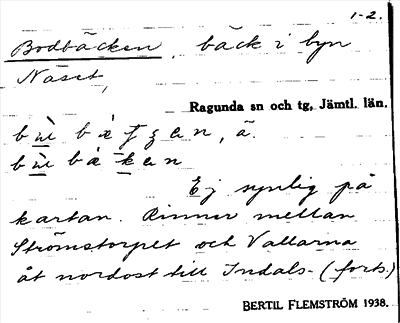 1-2.
Bodbäcken, bäck i byn
Näset,
Ragunda sn och tg, Jämtl. län.
Ej synlig på
kartan. Rinner mellan
Strömstorpet och Vallarna
åt nordost till Indals- (forts.)
BERTIL FLEMSTRÖM 1938.